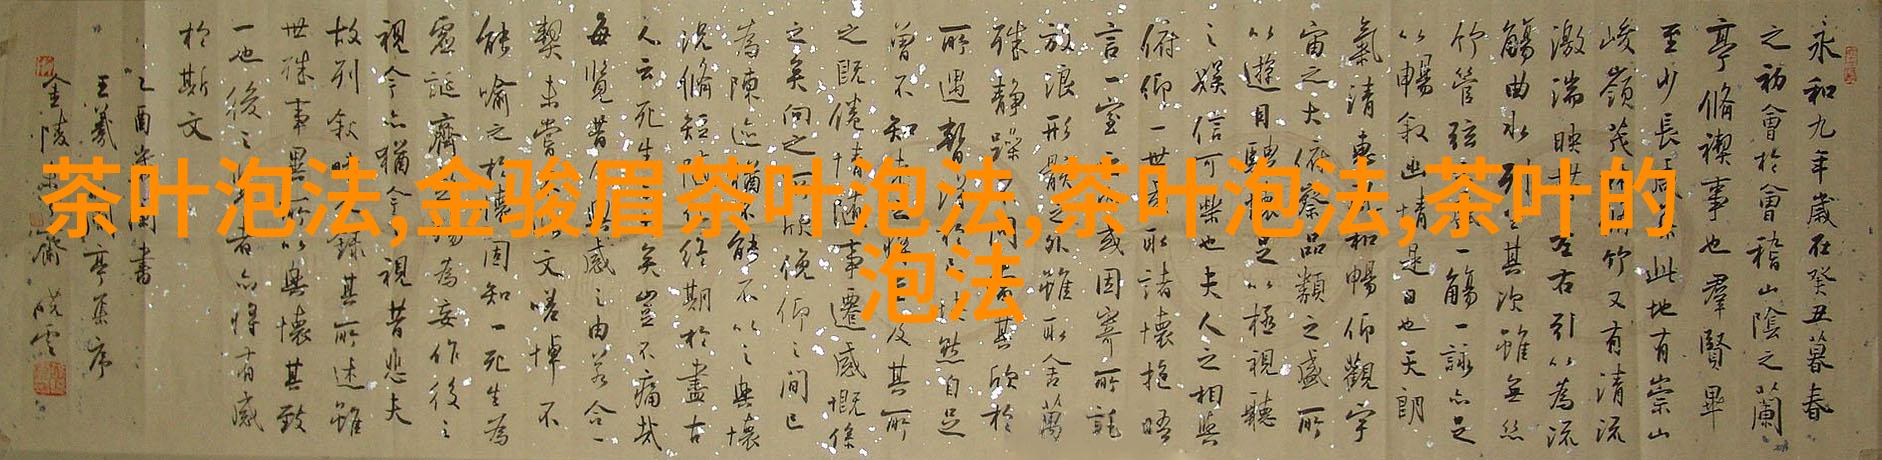 茶叶泡法,金骏眉茶叶泡法,茶叶泡法,茶叶的
泡法
永和九年歲在癸丑暮春
之初會於會稽山陰之蘭
亭脩禊事也羣賢畢
至少長咸集此地有崇山
峻嶺茂林脩竹又有清流
激湍映帶左右引以為流
觴曲水列坐其次雖無絲
竹管弦之盛一觴一詠亦足
以暢敘幽情是日也天朗
氣清惠風和暢仰觀宇
宙之大俯察品類之盛所
以遊目騁懷足以極視聽
之娛信可樂也夫人之相與
俯仰一世或取諸懷抱晤
言一室之內或因寄所託
放浪形骸之外雖取舍萬
殊靜躁不同當其欣於
所遇暫得於己快然自足
曾不知老之將至及其所
之既倦情隨事遷感慨係
之矣向之所欣俛仰之間已
為陳迹猶不能不以之興懷
況脩短隨化終期於盡古
人云死生亦大矣豈不痛哉
每覽昔人興感之由若合一
契未嘗不臨文嗟悼不
能喻之於懷固知一死生為
虛誕齊彭殤為妄作後之
視今亦猶今之視昔悲夫
故列敘時人錄其所述雖
世殊事異所以興懷其致
一也後之覽者亦將有感
於斯文
乙酉年 書
王羲之蘭亭集序
金陵 齋